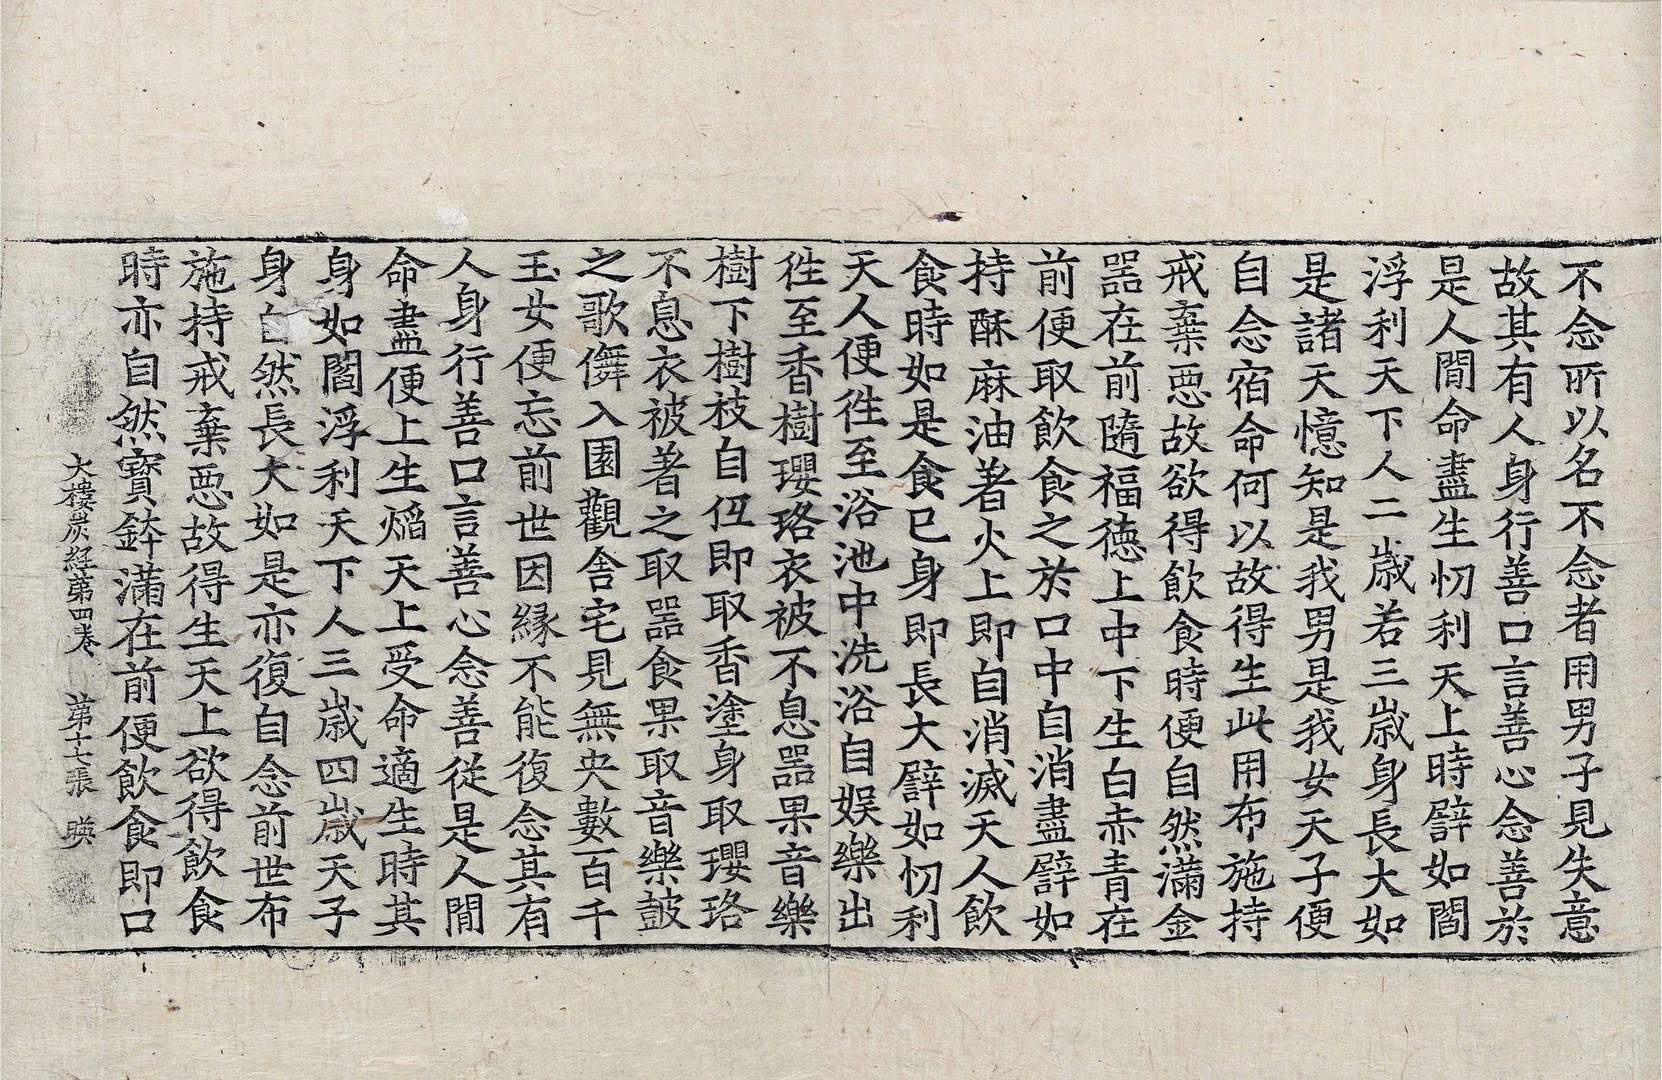 不念所以名不念者用男子見失意
故其有人身行善口言善心念善於
是人間命盡生忉利天上時譬如閻
浮利天下人二歲若三歲身長大如
是諸天憶知是我男是我女天子便
自念宿命何以故得生此用布施持
戒棄惡故欲得飲食時便自然滿金
器在前隨福德上中下生白赤青在
前便取飲食之於口中自消盡譬如
持酥麻油著火上即自消滅天人飲
食時如是食已身即長大譬如忉利
天人便徃至浴池中洗浴自娛樂出
徃至香樹瓔珞衣被不息器果音樂
樹下樹枝自低即取香塗身取瓔珞
不息衣被著之取器食果取音樂皷
之歌儛入園觀舍宅見無央數百千
玉女便忘前世因緣不能復念其有
人身行善口言善心念善從是人間
命盡便上生焰天上受命適生時其
身如閻浮利天下人三歲四歲天子
身自然長大如是亦復自念前世布
施持戒棄惡故得生天上欲得飲食
時亦自然寶鉢滿在前便飲食即口
大樓炭經第四卷 第十七張 暎